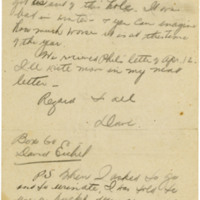 got us out of this hole. It was
bad in winter - & you can imagine
how much worse it is at this time
of the year
We received Phil's letter of Apr. 12.
I'll write more in my next
letter -
Regards to all
Dave
Box 60
David Eichel
P.S. When I asked to go
and to I was told to